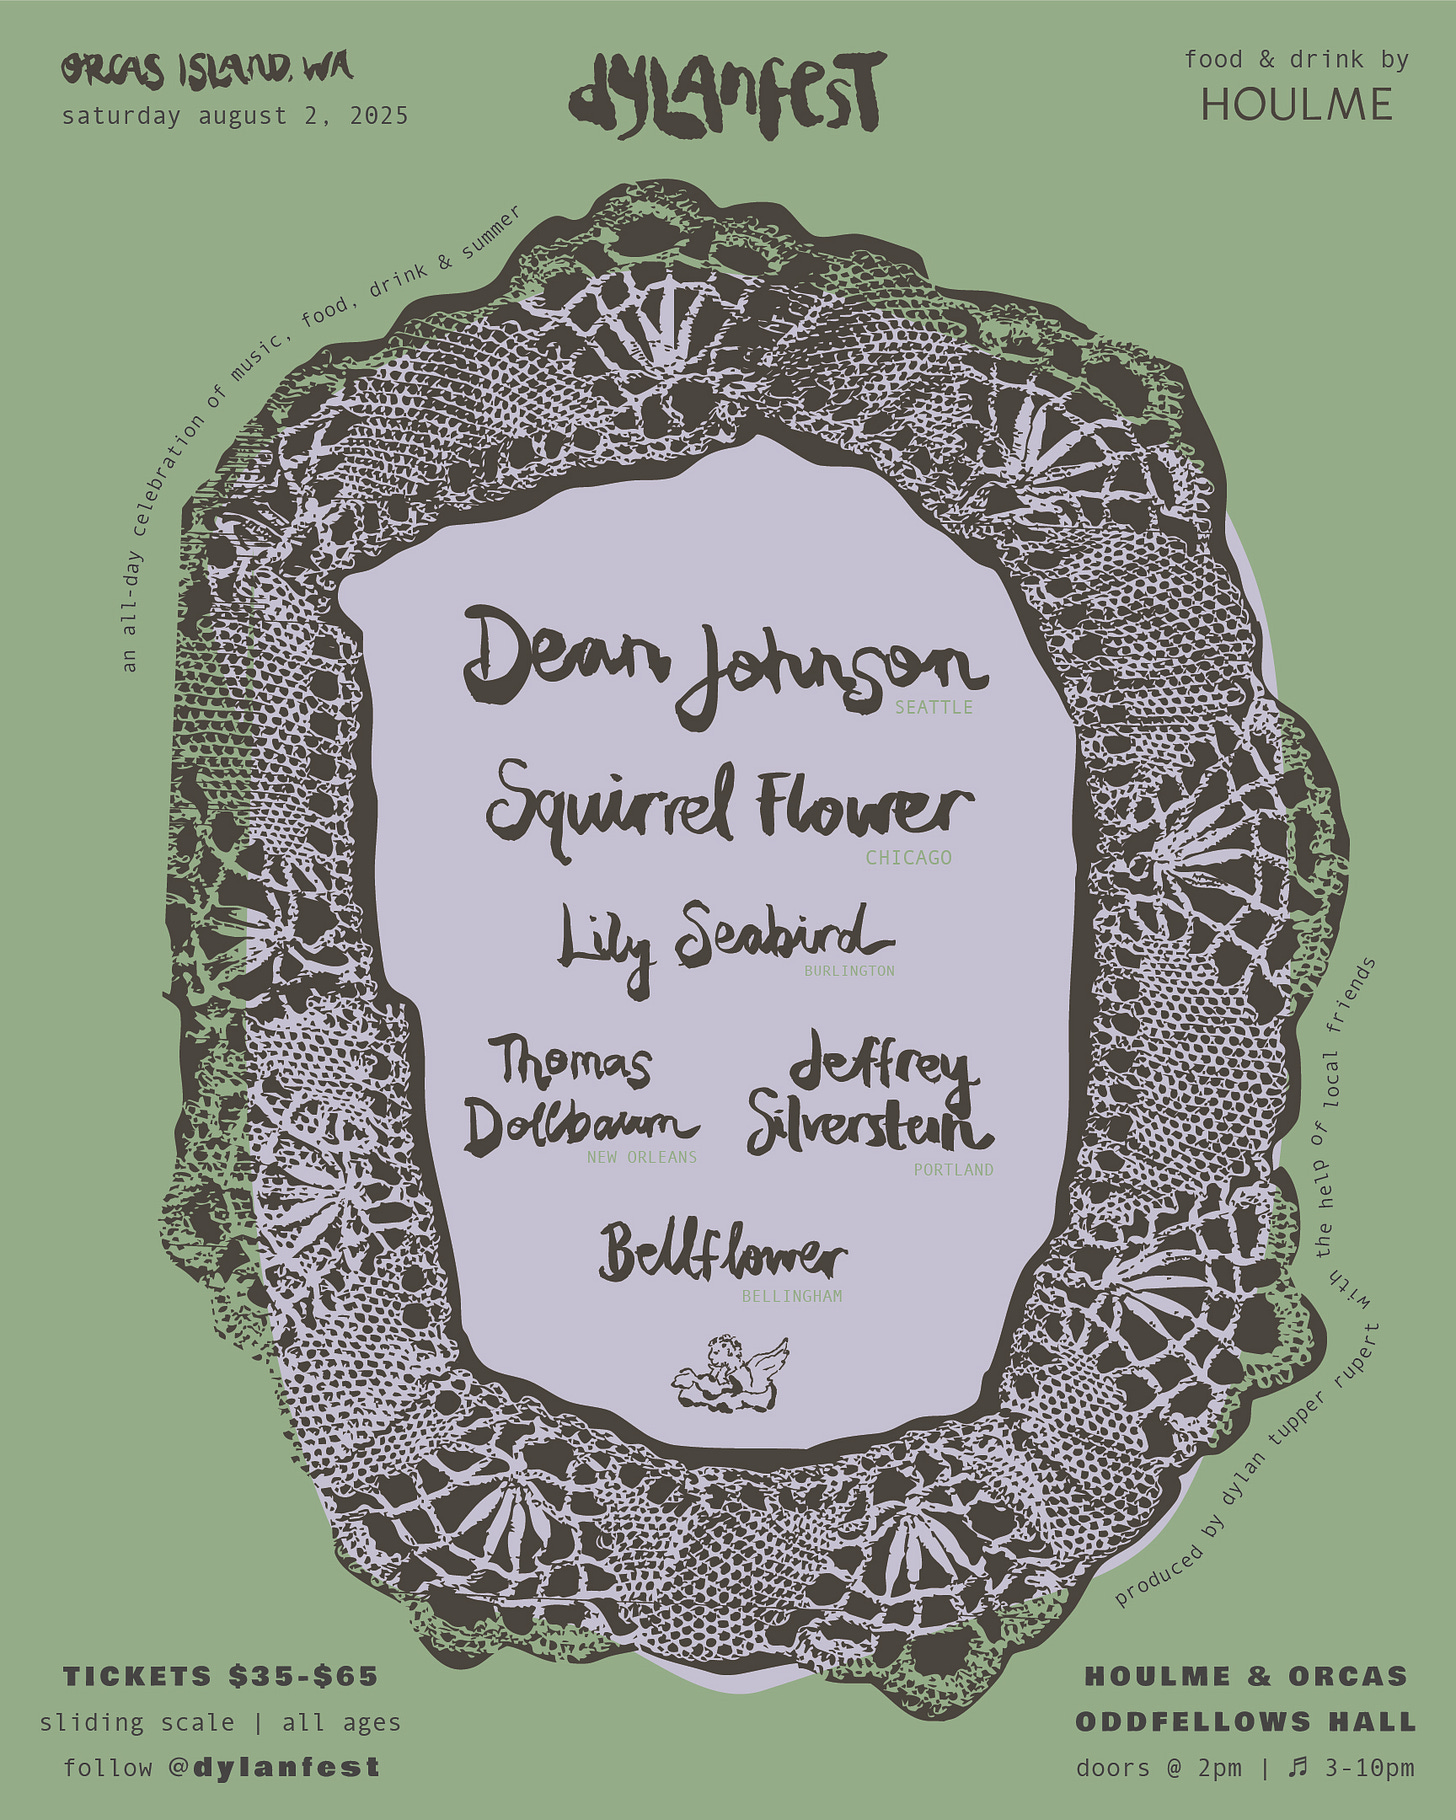 ORCAS ISLAND, WA
saturday august 2, 2025
dylanfest
food & drink by
HOULME
an all-day celebration of music, food, drink & summer
Dean Johnson
SEATTLE
Squirrel Flower
CHICAGO
Lily Seabird
BURLINGTON
Thomas
Dollbaum
NEW ORLEANS
Jeffrey
Silverstein
PORTLAND
Bellflower
BELLINGHAM
produced by dylan tupper rupert
with the help of local friends
TICKETS $35-$65
sliding scale | all ages
follow @dylanfest
HOULME & ORCAS
ODDFELLOWS HALL
doors @ 2pm | ♫ 3-10pm